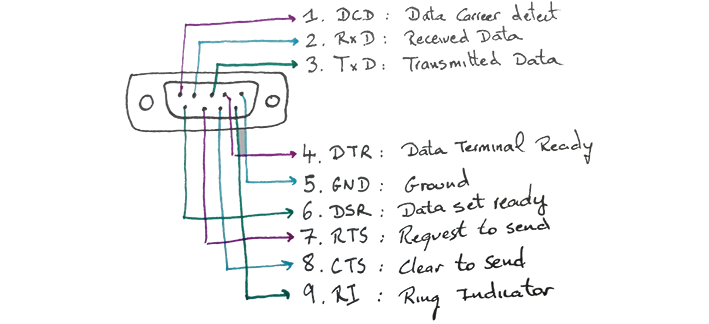 1. DCD : Data Carreer detect
2. RxD : Received Data
3. TxD : Transmitted Data
4. DTR : Data Terminal Ready
5. GND : Ground
6. DSR : Data set ready
7. RTS : Request to send
8. CTS : Clear to send
9. RI : Ring Indicator